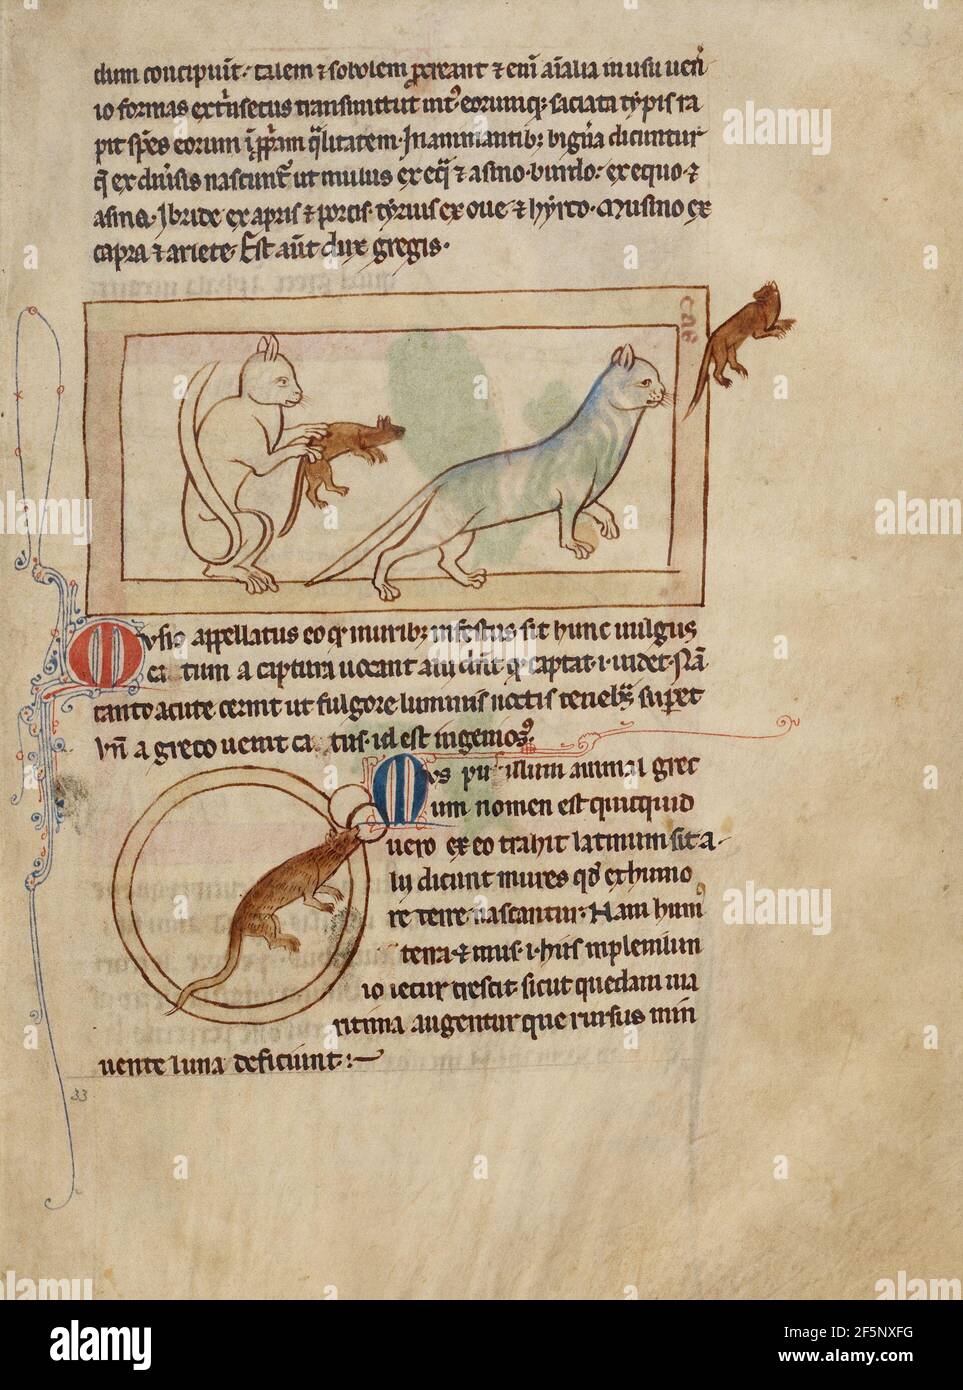 33
dum concipiunt. talem & sobolem procreant & enim animalia in usu ueneri
io formas extrinsecus transmittunt intus eorumque saciata typis ra
pit species eorum in propriam qualitatem. In animantibus bigena dicuntur
que ex diuersis nascuntur ut mulus ex equa & asino. burdo: ex equo &
asina. Ibride ex apris & porcis. tyrius ex oue & hyrco. Musino ex
capra & ariete. Est autem dux gregis.
Musio appellatus eo quod muribus infestus sit hunc uulgus
ca tum a captura uocant alii dicunt quod captat .i. uidet. Nam
tanto acute cernit ut fulgore luminis noctis tenebras superet
Vnde a greco uenit ca tus. id est ingeniosus.
Mus pusillum animal grec
um nomen est quicquid
uero ex eo trahit latinum sit. a
lii dicunt mures quod ex humo
re terre nascantur. Nam humus
terra & mus .i. huis in plenilun
io iecur crescit. sicut quedam ma
ritima augentur que rursus min
uente luna deficiunt:
33
a
alamy
a
alamy
alamy
www.alamy.com
Image ID: 2F5NXFG